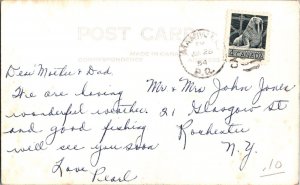 POST CARD
MADE IN CANADA
CORRESPONDENCE
54
P.Q.
CANADA
Dear Mother & Dad.
We are having
wonderful weather.
and good fishing
well see you soon
Love
Pearl
Mr & Mrs John Jones
21 Glasgow St
Rochester
N.Y.
.10